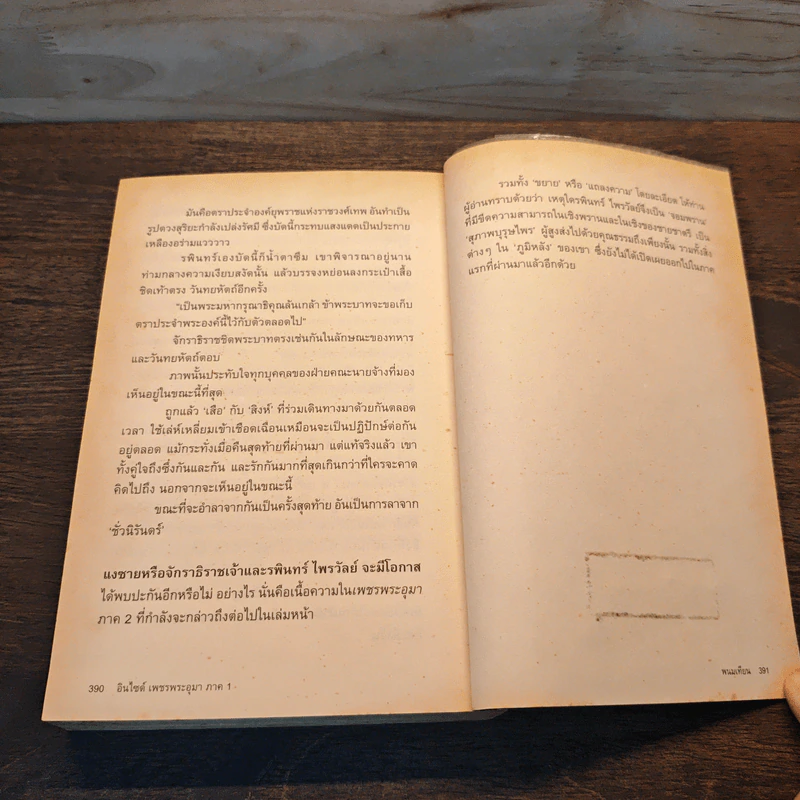 มันคือตราประจำองค์ยุพราชแห่งราชวงศ์เทพ อันทำเป็น
รูปดวงสุริยะกำลังเปล่งรัศมี ซึ่งบัดนี้กระทบแสงแดดเป็นประกาย
เหลืองอร่ามแวววาว
รพินทร์เองบัดนี้ก็น้ำตาซึม เขาพิจารณาอยู่นาน
ท่ามกลางความเงียบสงัดนั้น แล้วบรรจงหย่อนลงกระเป๋าเสื้อ
ชิดเท้าตรง วันทยหัตถ์อีกครั้ง
"เป็นพระมหากรุณาธิคุณล้นเกล้า ข้าพระบาทจะขอเก็บ
ตราประจำพระองค์นี้ไว้กับตัวตลอดไป"
จักราธิราชชิดพระบาทตรงเช่นกันในลักษณะของทหาร
และวันทยหัตถ์ตอบ
ภาพนั้นประทับใจทุกบุคคลของฝ่ายคณะนายจ้างที่มอง
เห็นอยู่ในขณะนี้ที่สุด
ถูกแล้ว 'เสือ' กับ 'สิงห์' ที่ร่วมเดินทางมาด้วยกันตลอด
เวลา ใช้เล่ห์เหลี่ยมเข้าเชือดเฉือนเหมือนจะเป็นปฏิปักษ์ต่อกัน
อยู่ตลอด แม้กระทั่งเมื่อคืนสุดท้ายที่ผ่านมา แต่แท้จริงแล้ว เขา
ทั้งคู่ใจถึงซึ่งกันและกัน และรักกันมากที่สุดเกินกว่าที่ใครจะคาด
คิดไปถึง นอกจากจะเห็นอยู่ในขณะนี้
ขณะที่จะอำลาจากกันเป็นครั้งสุดท้าย อันเป็นการลาจาก
'ชั่วนิรันดร์'
แงซายหรือจักราธิราชเจ้าและรพินทร์ ไพรวัลย์ จะมีโอกาส
ได้พบปะกันอีกหรือไม่ อย่างไร นั่นคือเนื้อความในเพชรพระอุมา
ภาค 2 ที่กำลังจะกล่าวถึงต่อไปในเล่มหน้า
390 อินไซด์ เพชรพระอุมา ภาค 1
รวมทั้ง 'ขยาย' หรือ 'แถลงความ' โดยละเอียด ให้ท่าน
ผู้อ่านทราบด้วยว่า เหตุใดรพินทร์ ไพรวัลย์จึงเป็น 'จอมพราน'
ที่มีขีดความสามารถในเชิงพรานและในเชิงของชายชาตรี เป็น
'สุภาพบุรุษไพร' ผู้สูงส่งไปด้วยคุณธรรมถึงเพียงนั้น รวมทั้งสิ่ง
ต่างๆ ใน 'ภูมิหลัง' ของเขา ซึ่งยังไม่ได้เปิดเผยออกไปในภาค
แรกที่ผ่านมาแล้วอีกด้วย
พนมเทียน 391